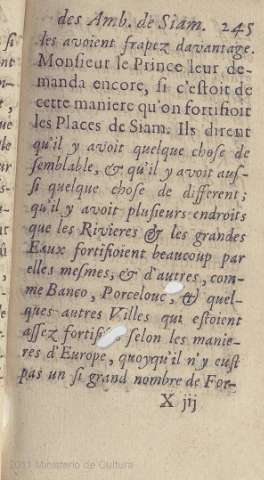 des Amb. de Siam. 245
les avoient frapez davantage.
Monsieur le Prince leur de-
manda encore, si c'estoit de
cette maniere qu'on fortifioit
les Places de Siam. Ils dirent
qu'il y avoit quelque chose de
semblable, & qu'il y avoit aus-
si quelque chose de different;
qu'il y avoit plusieurs endroits
que les Rivieres & les grandes
Eaux fortifioient beaucoup par
elles mesmes, & d'autres, com-
me Banco, Porcelouc, & quel-
ques autres Villes qui estoient
assez selon les manie-
res d'Europe, quoyqu'il n'y eust
pas un si grand nombre de For-
X iij
2011 Ministerio de Cultura